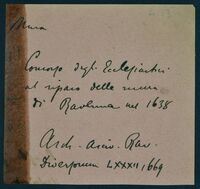 Mura
Concorso degli Ecclesiastici
al riparo delle mura
di Ravenna nel 1638
Arch. Arciv. Rav.
Diversorum LXXXII 1669